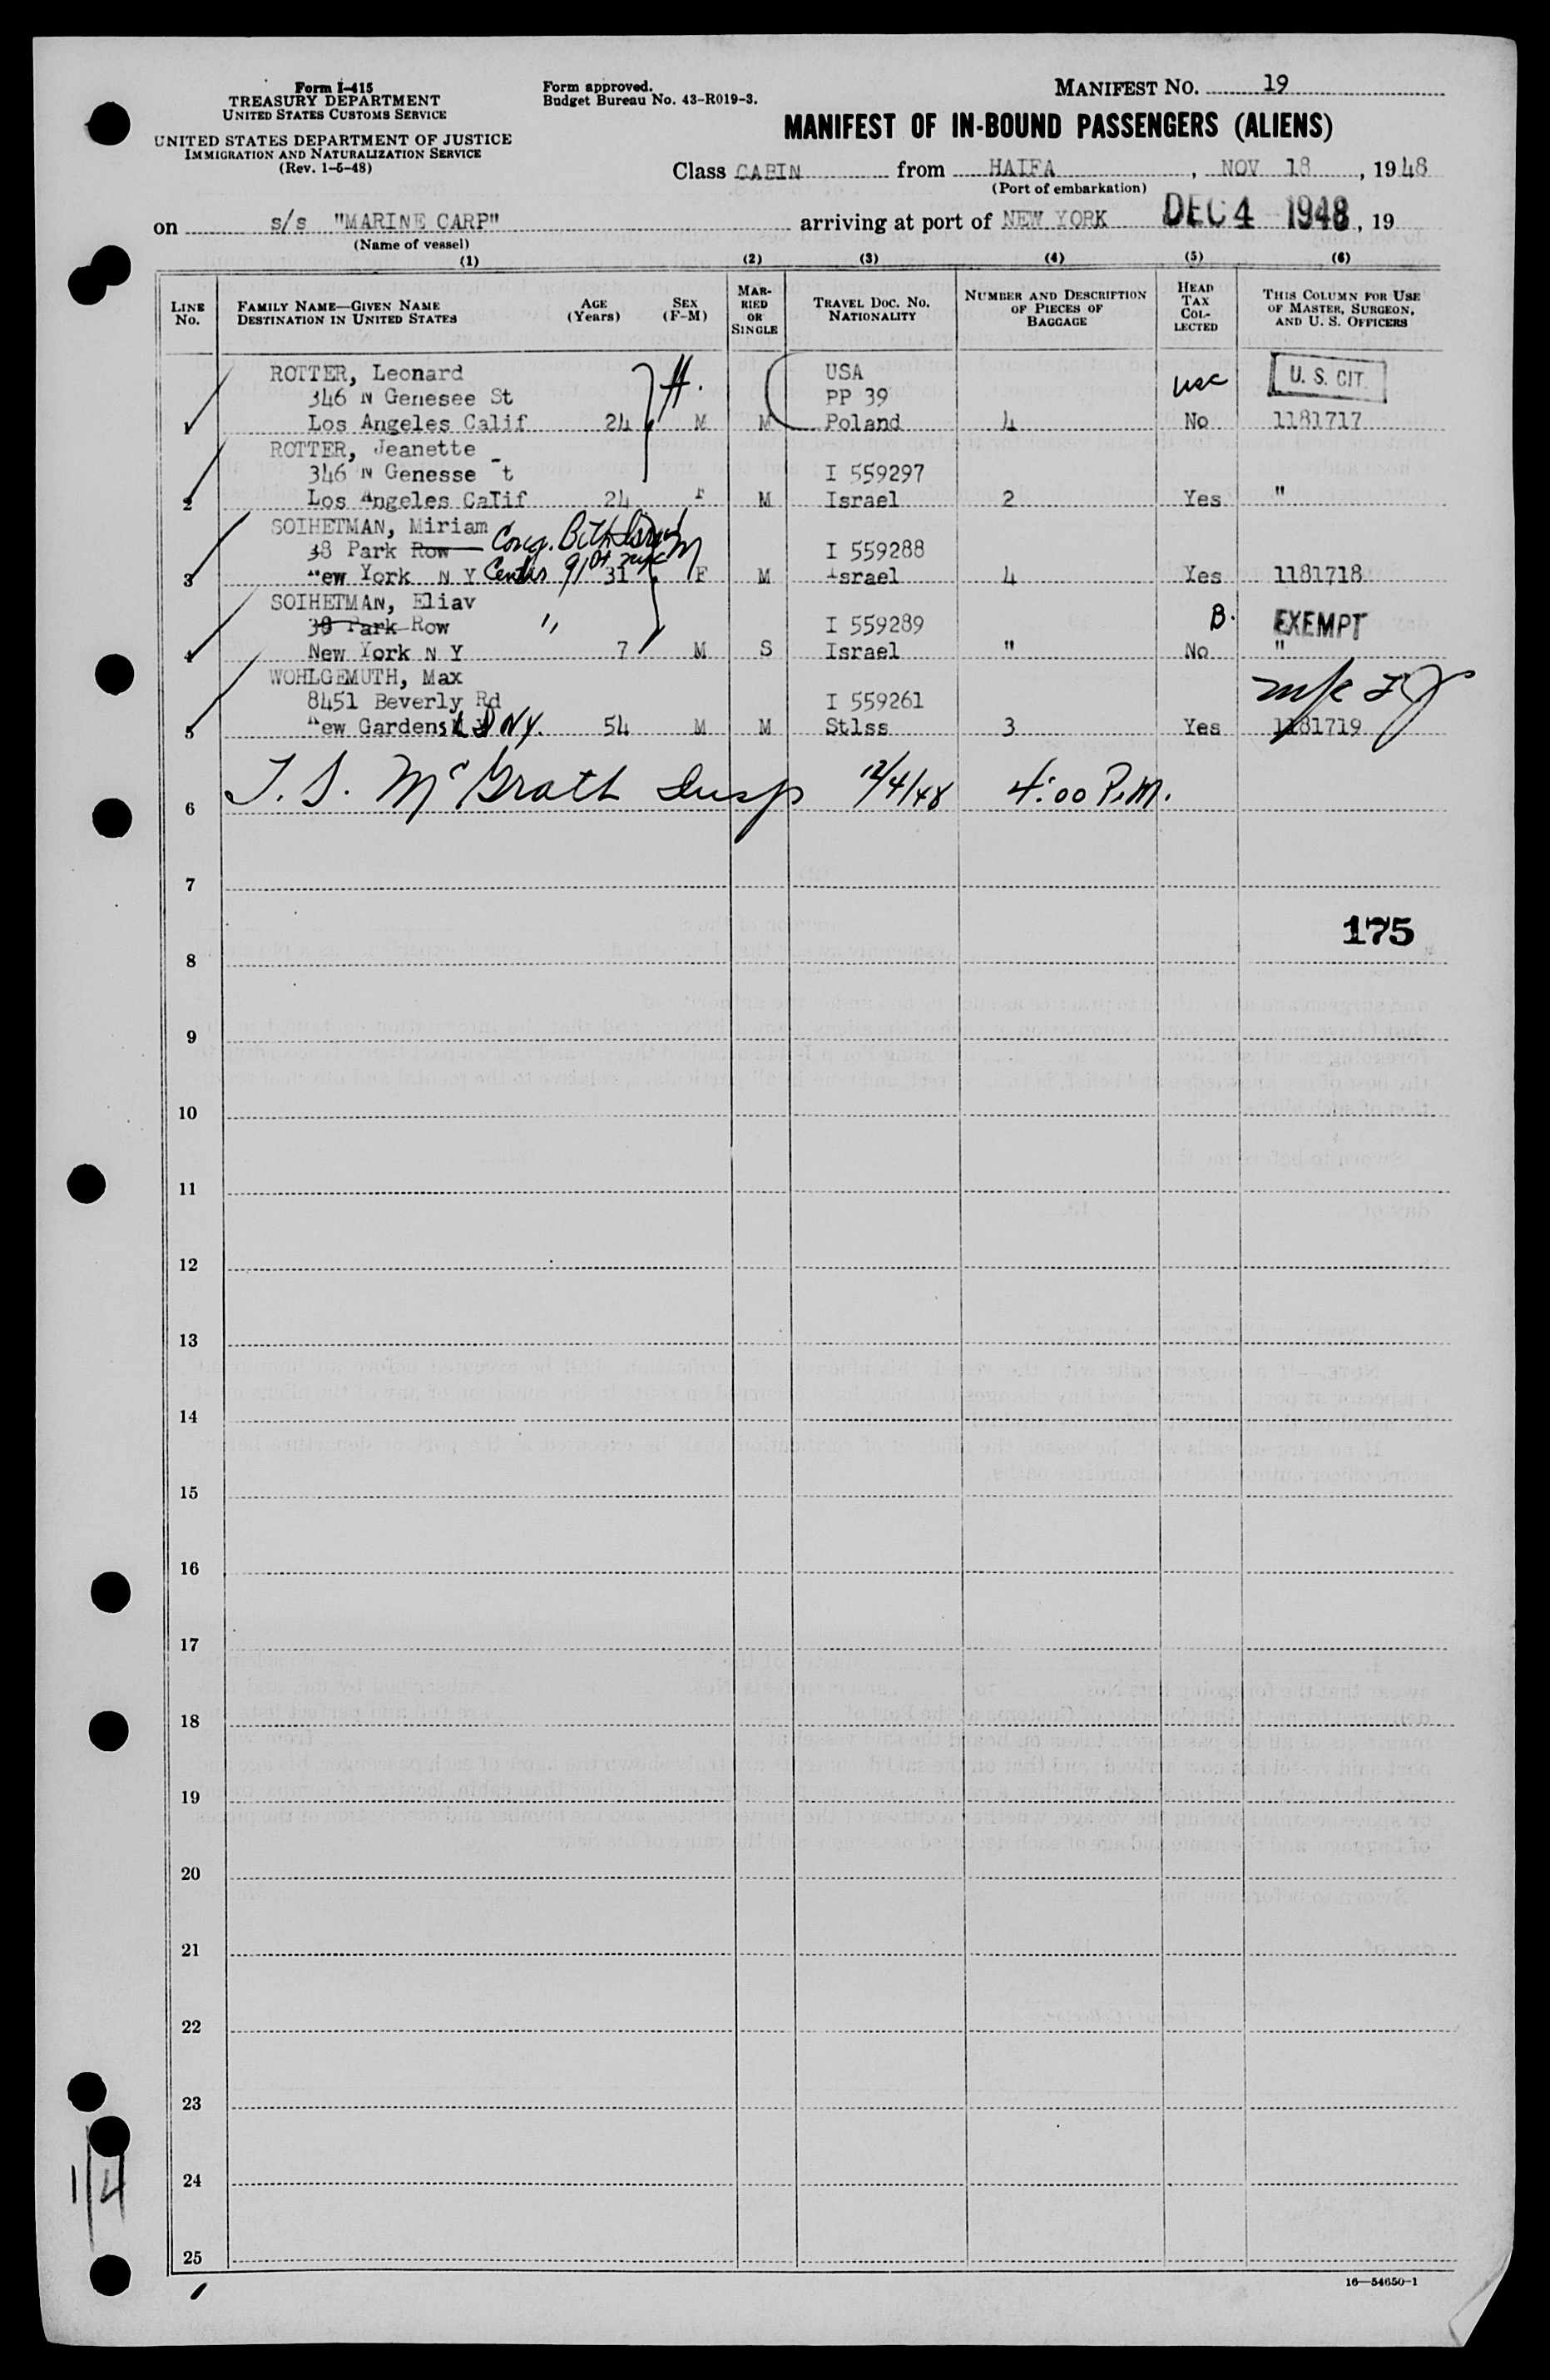 Form I-415
TREASURY DEPARTMENT
UNITED STATES CUSTOMS SERVICE
UNITED STATES DEPARTMENT OF JUSTICE
IMMIGRATION AND NATURALIZATION SERVICE
(Rev. 1-5-48)
Form approved.
Budget Bureau No. 43-R019-3.
MANIFEST NO. 19
MANIFEST OF IN-BOUND PASSENGERS (ALIENS)
Class CABIN from HAIFA, NOV 18, 1948
(Port of embarkation)
on s/s "MARINE CARP" arriving at port of NEW YORK DEC 4 1948, 19
(Name of vessel)
(1) (2) (3) (4) (5) (6)
LINE NO.
FAMILY NAME—GIVEN NAME
DESTINATION IN UNITED STATES
AGE (Years)
SEX (F-M)
MARRIED OR SINGLE
TRAVEL DOC. NO.
NATIONALITY
NUMBER AND DESCRIPTION OF PIECES OF BAGGAGE
HEAD TAX COLLECTED
THIS COLUMN FOR USE OF MASTER, SURGEON, AND U. S. OFFICERS
ROTTER, Leonard H. USA U. S. CIT.
346 N Genesee St PP 39 usc
1 Los Angeles Calif 24 M M Poland 4 No 1181717
ROTTER, Jeanette
346 N Genesse t I 559297
2 Los Angeles Calif 24 F M Israel 2 Yes "
SOIHETMAN, Miriam Cong. Beth Israel
38 Park Row I 559288
3 ew York N Y Center 91 St NYC 31 F M Israel 4 Yes 1181718
SOIHETMAN, Eliav B. EXEMPT
38 Park Row " I 559289
4 New York N Y 7 M S Israel " No "
WOHLGEMUTH, Max
8451 Beverly Rd I 559261
5 ew Gardens L I NY. 54 M M Stlss 3 Yes 1181719
6 T. S. McGrath Insp 12/4/48 4:00 P.M.
7
175
8
9
10
11
12
13
14
15
16
17
18
19
20
21
22
23
24
25
1/4
16—54650-1